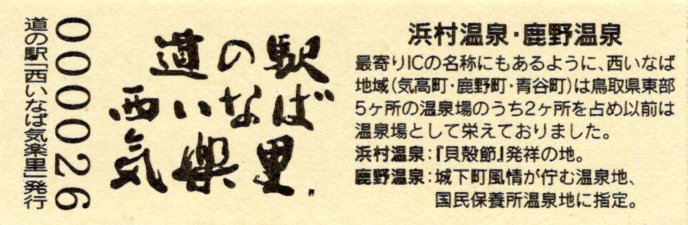 道の駅「西いなば気楽里」発行
000026
道の駅
西いなば
気楽里
浜村温泉・鹿野温泉
最寄りICの名称にもあるように、西いなば
地域(気高町・鹿野町・青谷町)は鳥取県東部
5ヶ所の温泉場のうち2ヶ所を占め以前は
温泉場として栄えておりました。
浜村温泉:『貝殻節』発祥の地。
鹿野温泉:城下町風情が佇む温泉地、
国民保養所温泉地に指定。